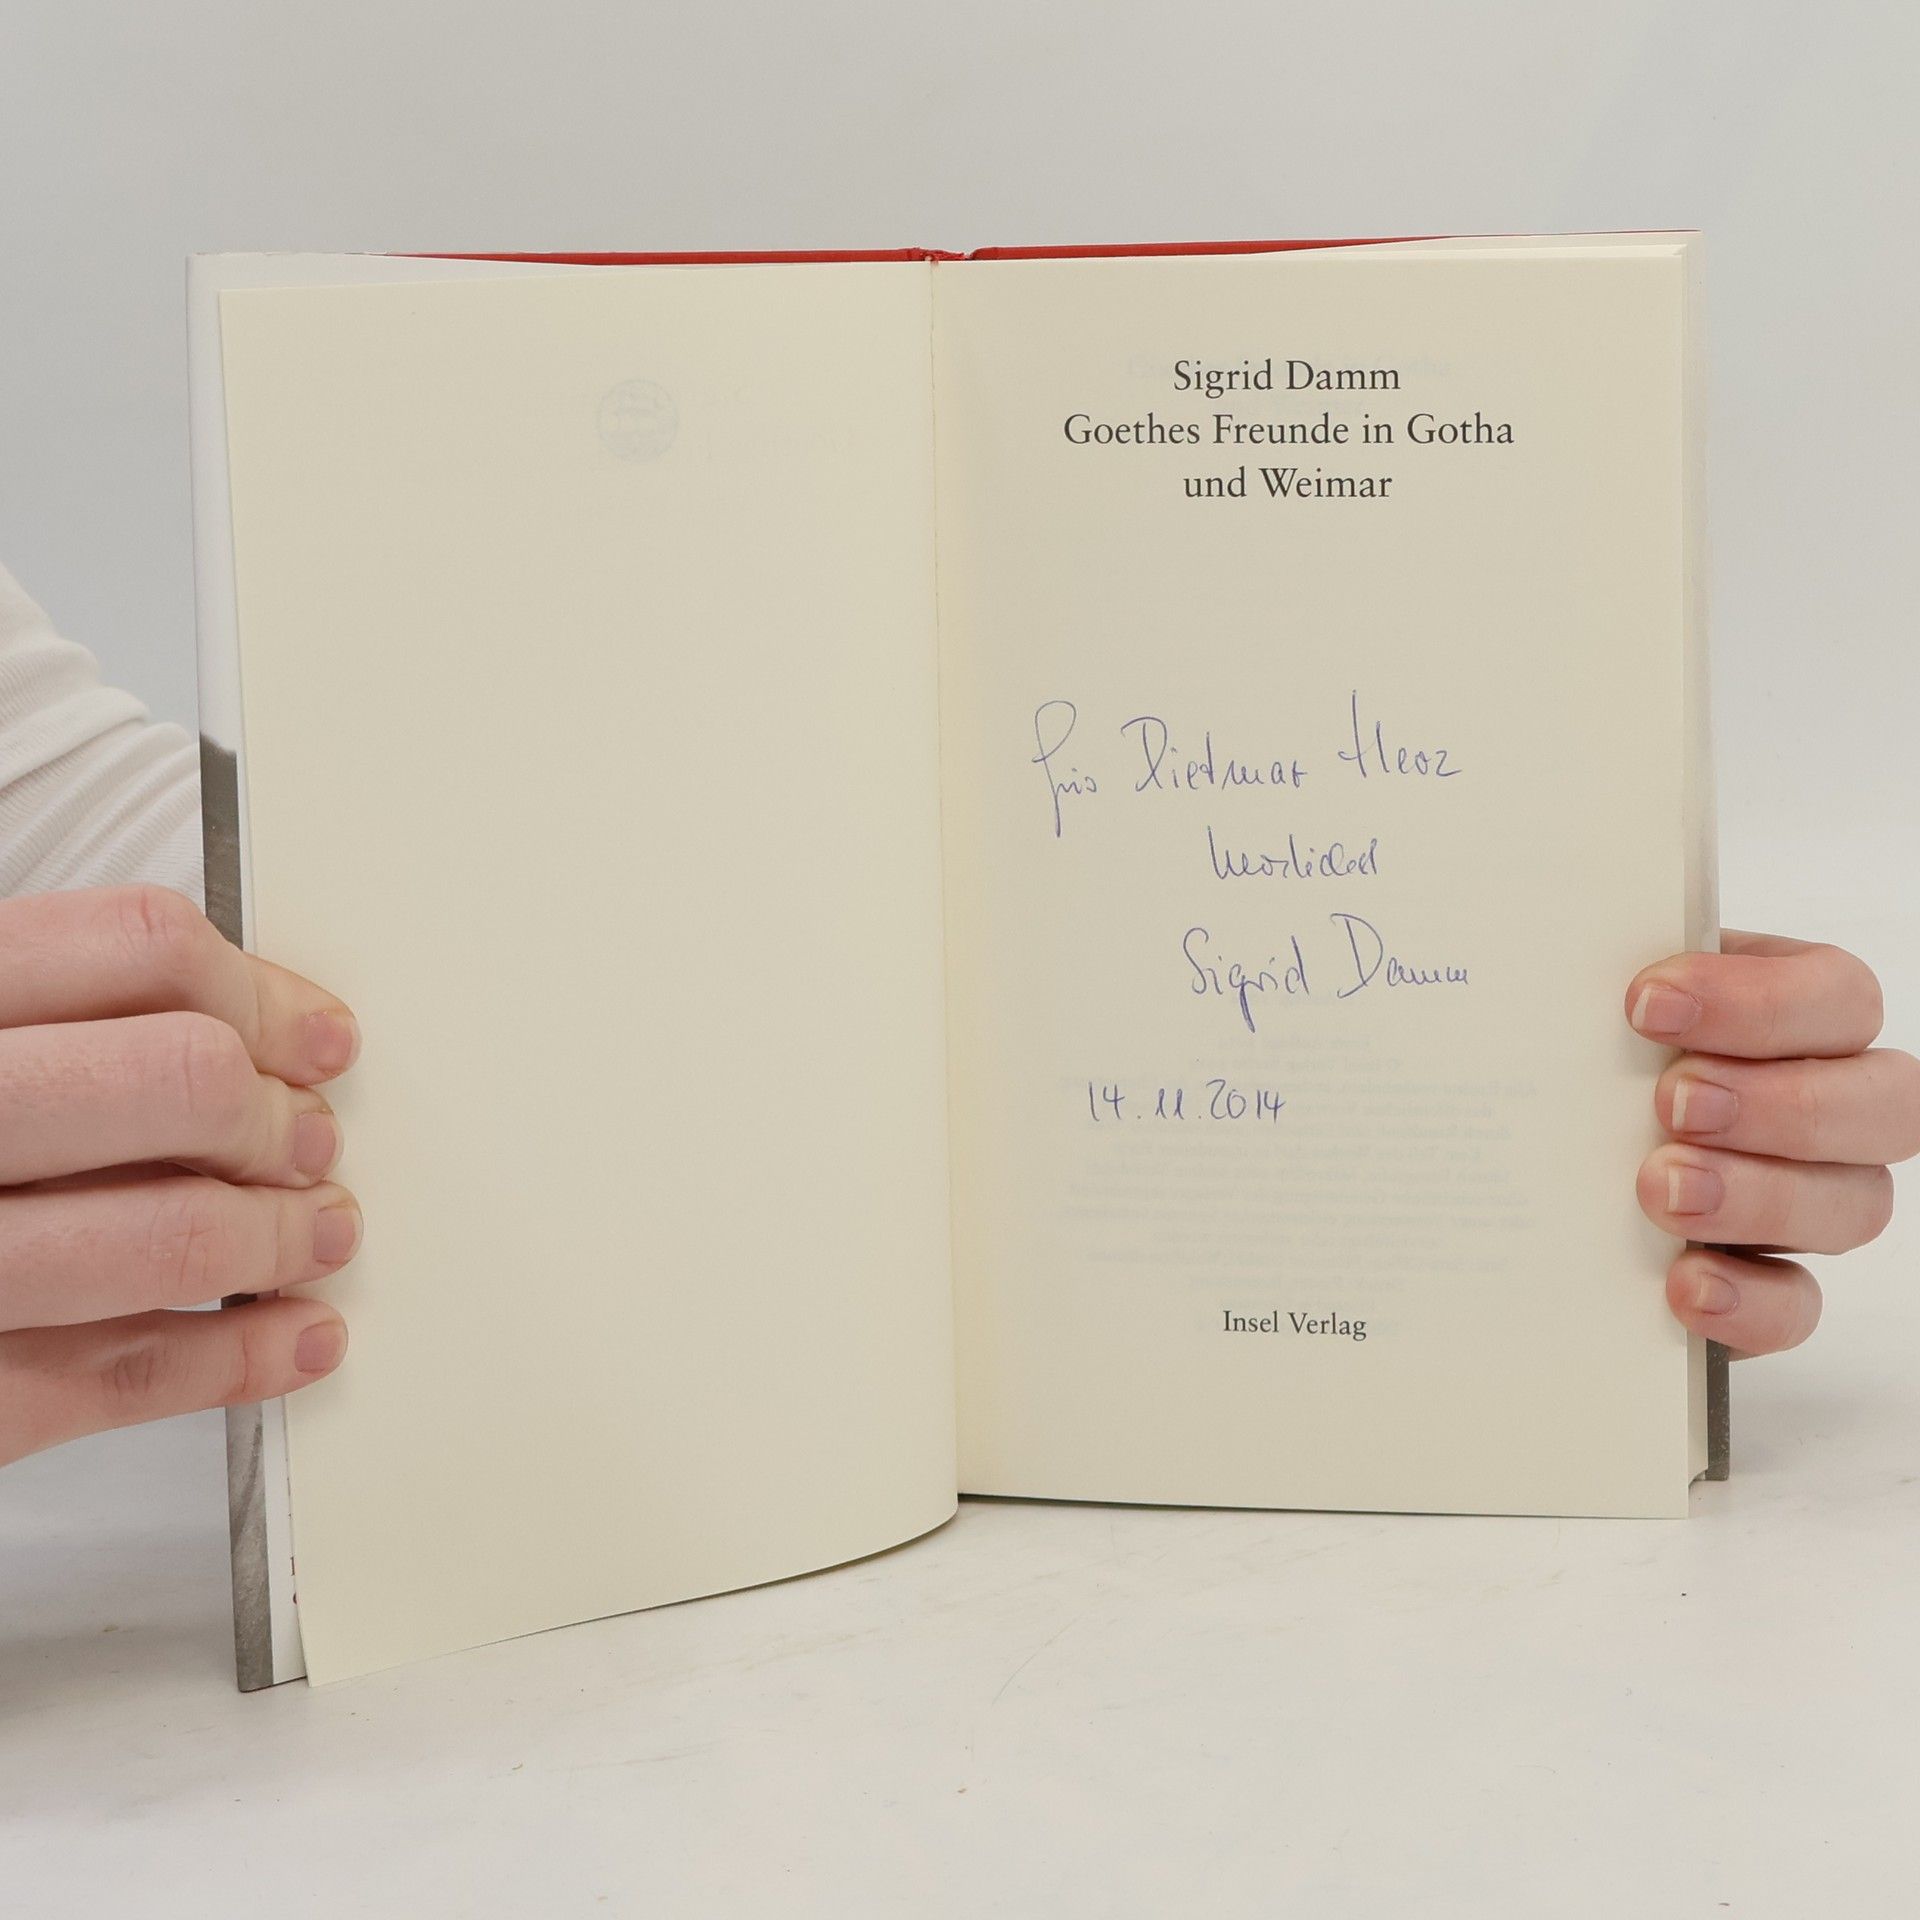 Sigrid Damm
Goethes Freunde in Gotha
und Weimar
Für Dietmar Herz
herzlichst
Sigrid Damm
14.11.2014
Insel Verlag